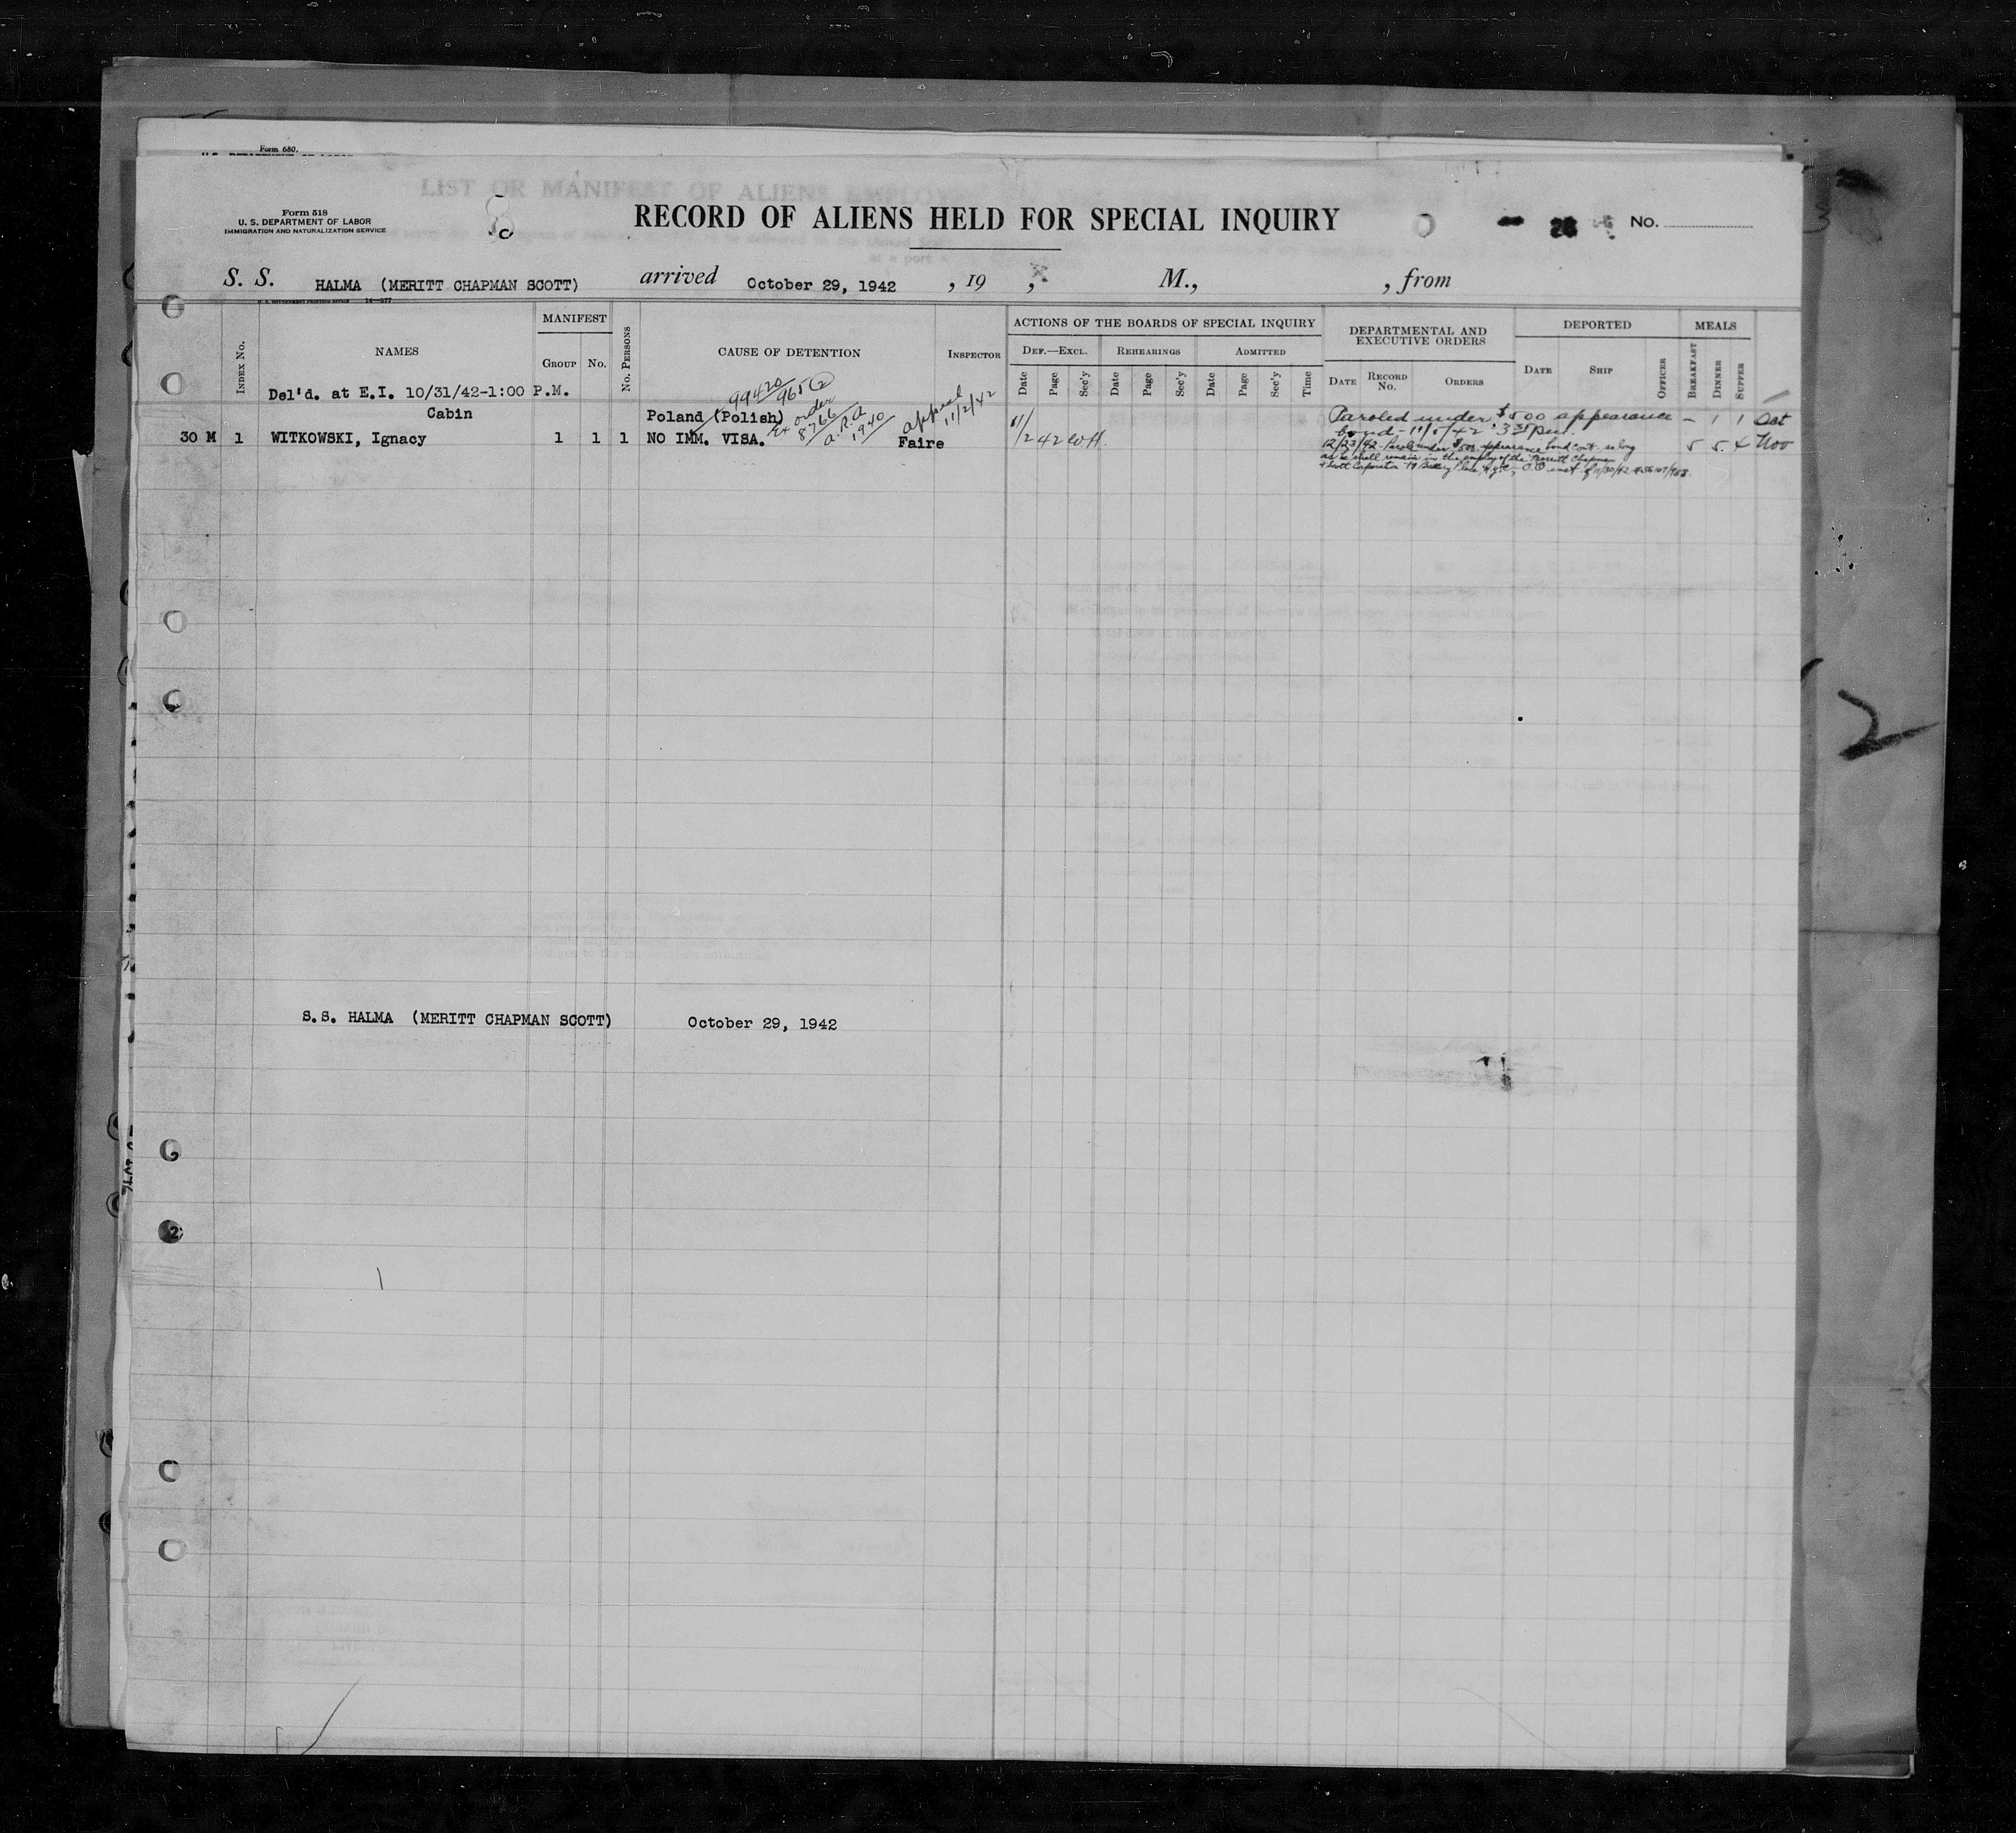 Form 680.
Form 518
U. S. DEPARTMENT OF LABOR
IMMIGRATION AND NATURALIZATION SERVICE
LIST OR MANIFEST OF ALIENS EMPLOYED
RECORD OF ALIENS HELD FOR SPECIAL INQUIRY
No.
S. S. HALMA (MERITT CHAPMAN SCOTT) arrived October 29, 1942 , 19 , M., , from
14—577
INDEX No.
NAMES
MANIFEST
GROUP No.
No. PERSONS
CAUSE OF DETENTION
INSPECTOR
ACTIONS OF THE BOARDS OF SPECIAL INQUIRY
DEF.—EXCL. REHEARINGS ADMITTED
Date Page Sec'y Date Page Sec'y Date Page Sec'y Time
DEPARTMENTAL AND
EXECUTIVE ORDERS
DATE RECORD No. ORDERS
DEPORTED
DATE SHIP OFFICER
MEALS
BREAKFAST DINNER SUPPER
Del'd. at E.I. 10/31/42-1:00 P.M.
99420/965
Cabin Poland (Polish) Ex order 8766 A.R.A. 1940 appeal 11/2/42
30 M 1 WITKOWSKI, Ignacy 1 1 1 NO IMM. VISA. Faire 11/2 42
Paroled under $500 appearance – 1 1 Oct
bond - 11/5/42 5 5 4 Nov
12/23/42 - Parole under $500 appearance bond cont. so long
as he shall remain in the employ of the Merritt Chapman
& Scott Corporation 17 Battery Place, N.Y.C.
S.S. HALMA (MERITT CHAPMAN SCOTT) October 29, 1942
2